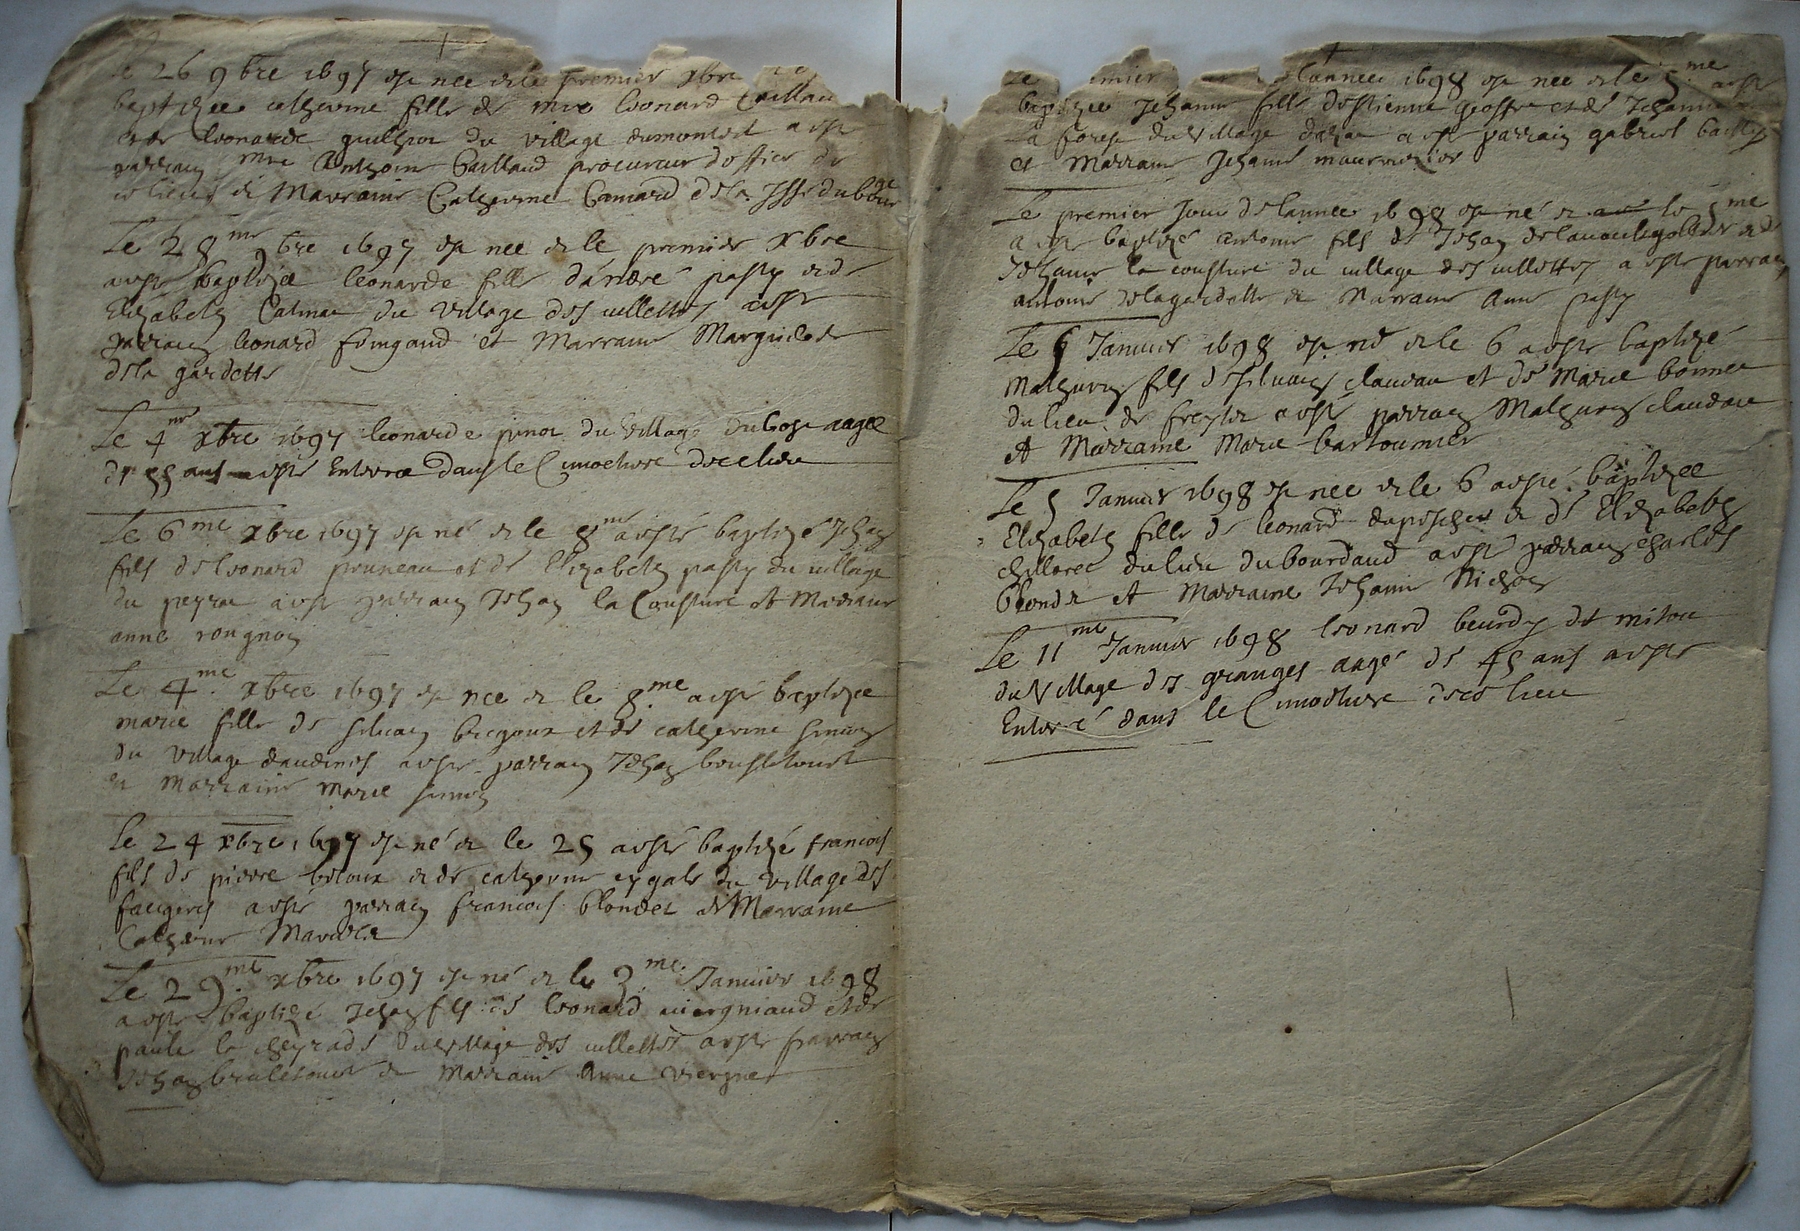 Le 26 9bre 1697 est nee et le premier xbre
baptizee catherine fille de mre leonard Caillau
et de leonarde du village a este
parrain mre Anthoine Caillaud procureur d'office de
ce lieu et Marraine Catherine
Le 28me 9bre 1697 est nee et le premier xbre
a este baptizee leonarde fille d'andre pasty et de
Elizabeth du village des villettes a este
parrain leonard foingaud et Marraine Marguerite
dela gardette
Le 4me xbre 1697 leonarde du village du bost aagee
de 55 ans a este Enterree dans le Cimetiere de ce lieu
Le 6me xbre 1697 est né et le 8me a esté baptizé Jehan
fils de leonard pruneau et de Elizabeth pasty du village
du peyrou a este parrain Jehan la Cousture et Marraine
anne rougnon
Le 4me xbre 1697 est nee et le 8me a este baptizee
marie fille de silvain et de catherine simon
du village daudines a este parrain Jehan
et Marraine Marie simon
Le 24 xbre 1697 est né et le 25 a esté baptizé francois
fils de pierre et de catherine cygale du village des
faugeres a este parrain francois blondet et Marraine
Catherine
Le 29me xbre 1697 est né et le 3me Janvier 1698
a este baptizé Jehan fils de leonard viergniaud et de
paule la cheyrade du village des villettes a este parrain
Jehan et Marraine Anne vergne
Le premier de l'annee 1698 est nee et le 5me a este
baptizee Jehanne fille d'estienne et de Jehanne
la forest du village a este parrain gabriel bailly
et Marraine Jehanne
Le premier Jour de l'annee 1698 est né et le 5me
a este baptizé antoine fils de Jehan et de
Jehanne la cousture du village des villettes a este parrain
antoine de lagardette et Marraine Anne pasty
Le 6 Janvier 1698 est né et le 6 a este baptizé
Mathurin fils de silvain claudau et de Marie bonnet
du lieu de a esté parrain Mathurin claudau
et Marraine Marie bartoumier
Le 5 Janvier 1698 est nee et le 6 a esté baptizee
Elizabeth fille de leonard et de Elizabeth
du lieu du bourdaud a este parrain charles
blondet et Marraine Jehanne Nichon
Le 11me Janvier 1698 leonard beurdy dit miton
du village des granges aagé de 45 ans a este
Enterré dans le Cimetiere de ce lieu